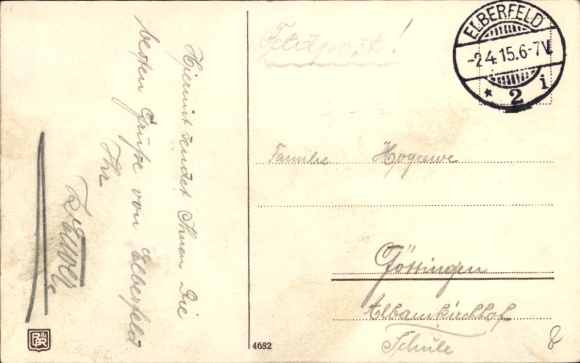 Hiermit sendet Ihnen Die
besten Grüße von Elberfeld
Ihr
Feldpost!
ELBERFELD
-2.4.15.6-7V.
* 2 i
Familie Hogrewe
Göttingen
Albanikirchhof
Schule
4682